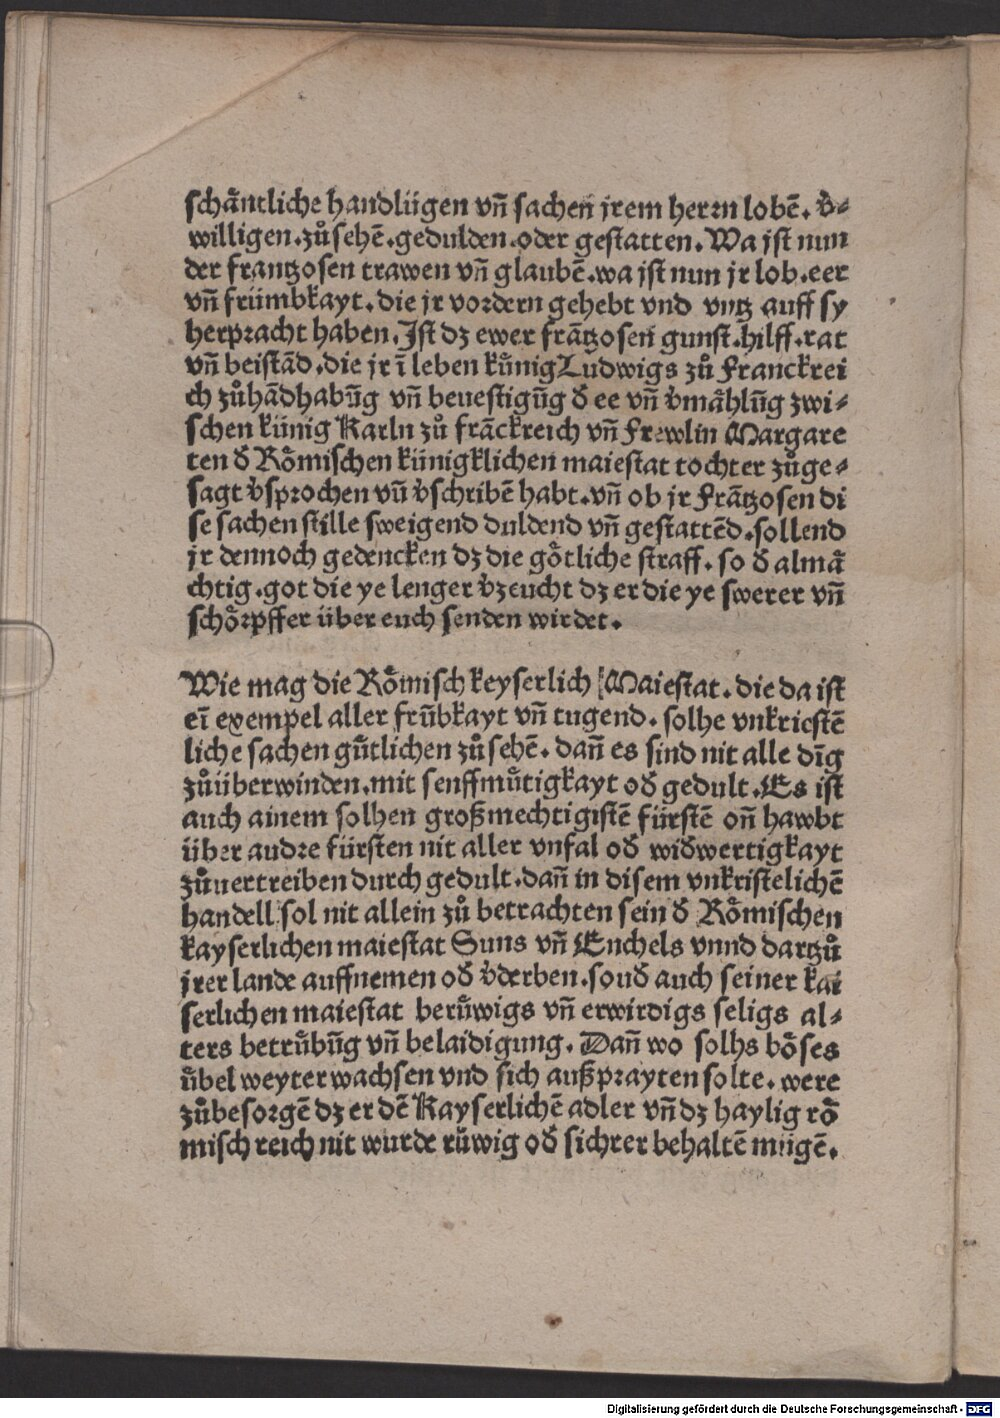 schåntliche handlūgen vn̄ sachen jrem herrn lobē. v̓⸗
willigen.zůsehē.gedulden.oder gestatten.Wa jst nun
der frantzosen trawen vn̄ glaubē.wa jst nun jr lob.eer
vn̄ frümbkayt.die jr vordern gehebt vnd vntz auff sy
herpracht haben.Jst dz ewer frātzosen gunst.hilff.rat
vn̄ beistād.die jr ī leben künig Ludwigs zů Franckrei
ch zůhādhabūg vn̄ beuestigūg d̓ ee vn̄ v̓måhlūg zwi⸗
schen künig Karln zů frāckreich vn̄ Frewlin Margare
ten d̓ Rômischen künigklichen maiestat tochter zůge⸗
sagt v̓sprochen vn̄ v̓schribē habt.vn̄ ob jr Frātzosen di
se sachen stille sweigend duldend vn̄ gestattēd.sollend
jr dennoch gedencken dz die gôtliche straff. so d̓ almå
chtig.got die ye lenger v̓zeucht dz er die ye swerer vn̄
schôrpffer über euch senden wirdet.
Wie mag die Rômisch keyserlich Maiestat.die da ist
eī exempel aller frūbkayt vn̄ tugend. solhe vnkriestē
liche sachen gůtlichen zůsehē. dan̄ es sind nit alle dīg
zůüberwinden.mit senffmůtigkayt od̓ gedult.Es ist
auch ainem solhen großmechtigistē fürstē on̄ hawbt
über andre fürsten nit aller vnfal od̓ wid̓wertigkayt
zůuertreiben durch gedult.dan̄ in disem vnkristelichē
handell sol nit allein zů betrachten sein d̓ Rômischen
kayserlichen maiestat Suns vn̄ Enchels vnnd dartzů
jrer lande auffnemen od̓ v̓derben.sond̓ auch seiner kai
serlichen maiestat berůwigs vn̄ erwirdigs seligs al⸗
ters betrůbūg vn̄ belaidigung. Dan̄ wo solhs bôses
übel weyter wachsen vnd sich außprayten solte. were
zůbesorgē dz er dē Kayserlichē adler vn̄ dz haylig rô
misch reich nit wurde růwig od̓ sichrer behaltē mügē.
Digitalisierung gefördert durch die Deutsche Forschungsgemeinschaft - DFG